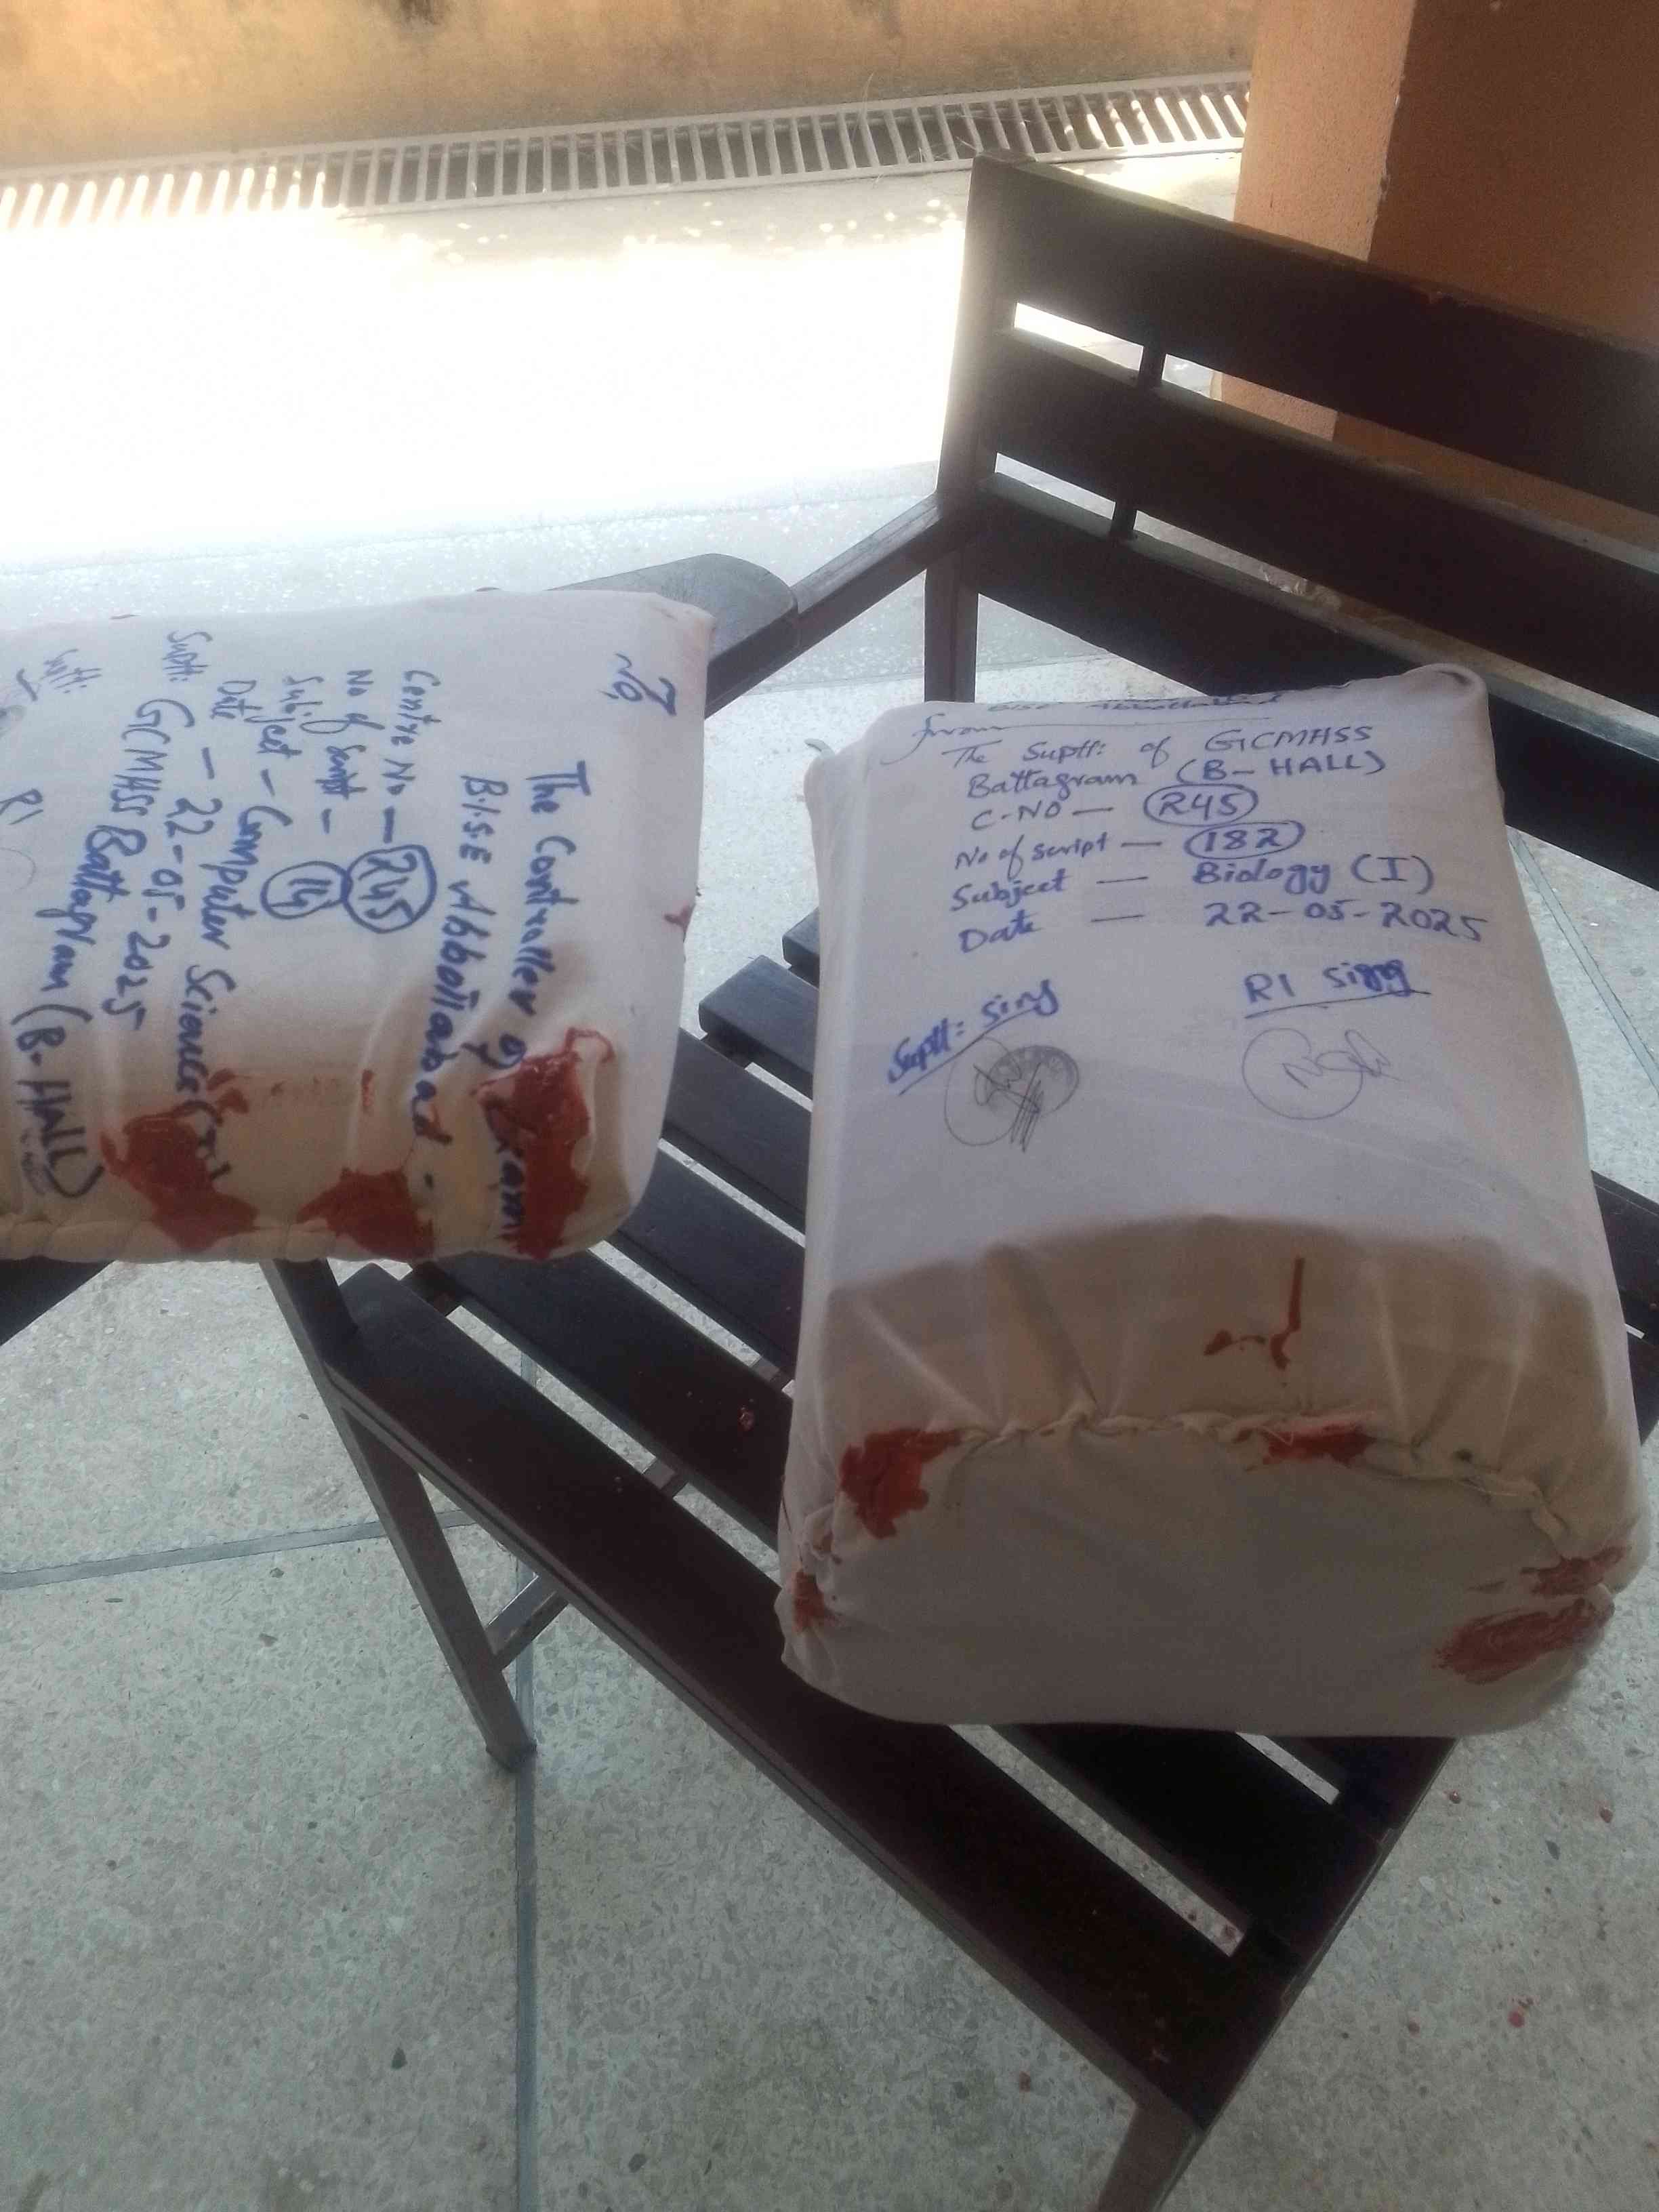 To,
The Controller of Exam
B.I.S.E Abbottabad.
Centre No — R45
No of Script — 114
Subject — Computer Science
Date — 22-05-2025
Suptt: GCMHSS Battagram (B-HALL)
Suptt:
RI
BISE Abbottabad
from
The Suptt: of GCMHSS
Battagram (B-HALL)
C-NO — R45
No of script — 182
Subject — Biology (I)
Date — 22-05-2025
Suptt: Sing
RI Sing